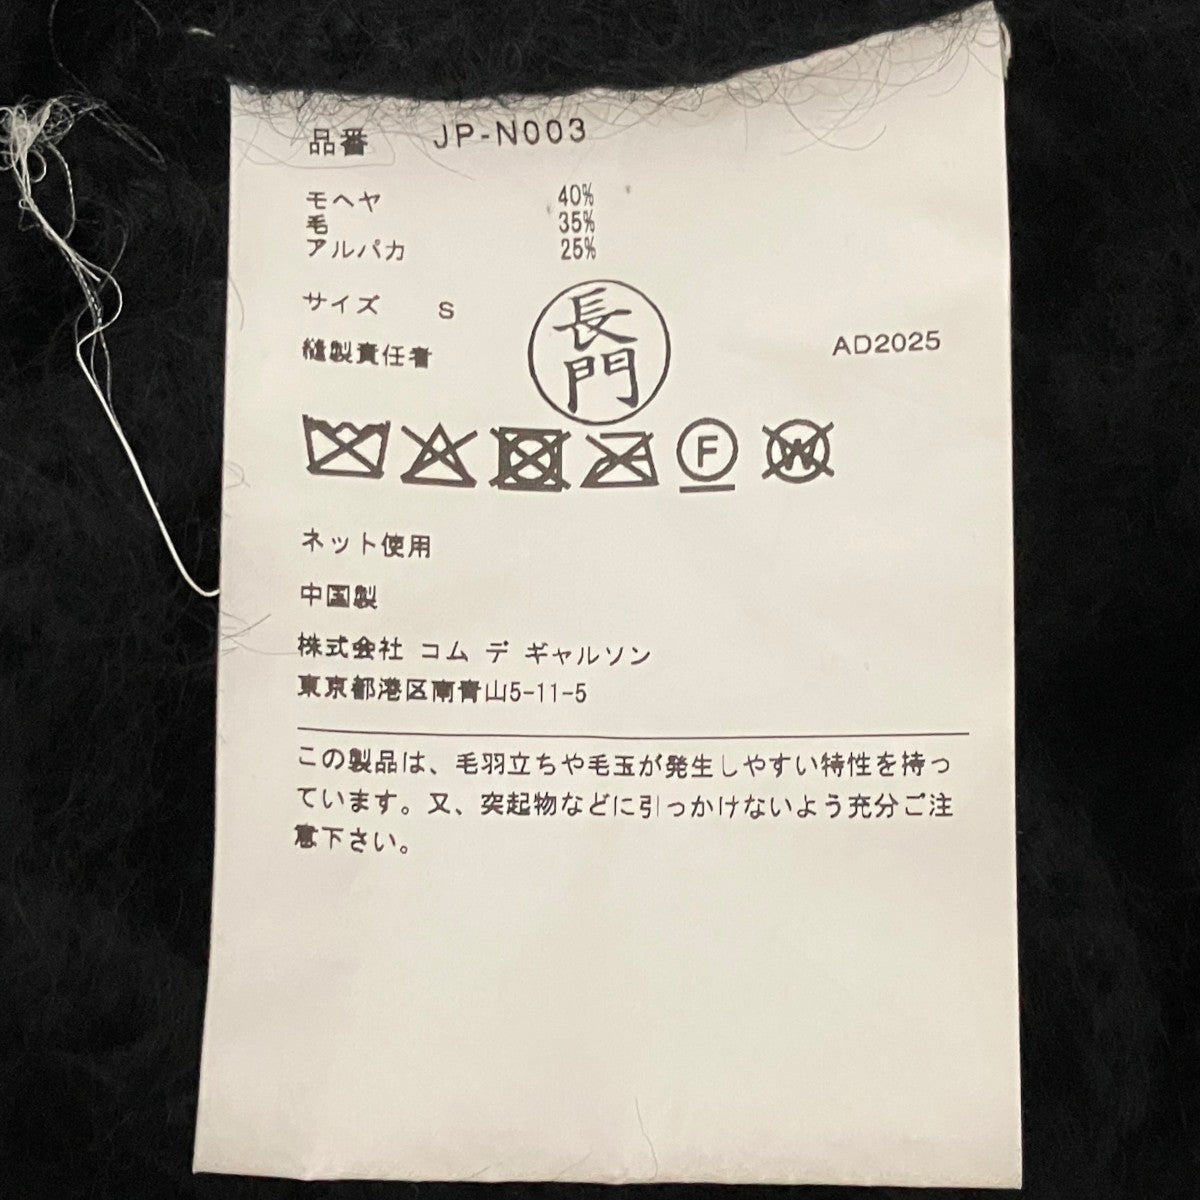 品番 JP-N003
モヘヤ 40%
毛 35%
アルパカ 25%
サイズ S
長門
縫製責任者
AD2025
F
W
ネット使用
中国製
株式会社 コム デ ギャルソン
東京都港区南青山5-11-5
この製品は、毛羽立ちや毛玉が発生しやすい特性を持っ
ています。又、突起物などに引っかけないよう充分ご注
意下さい。